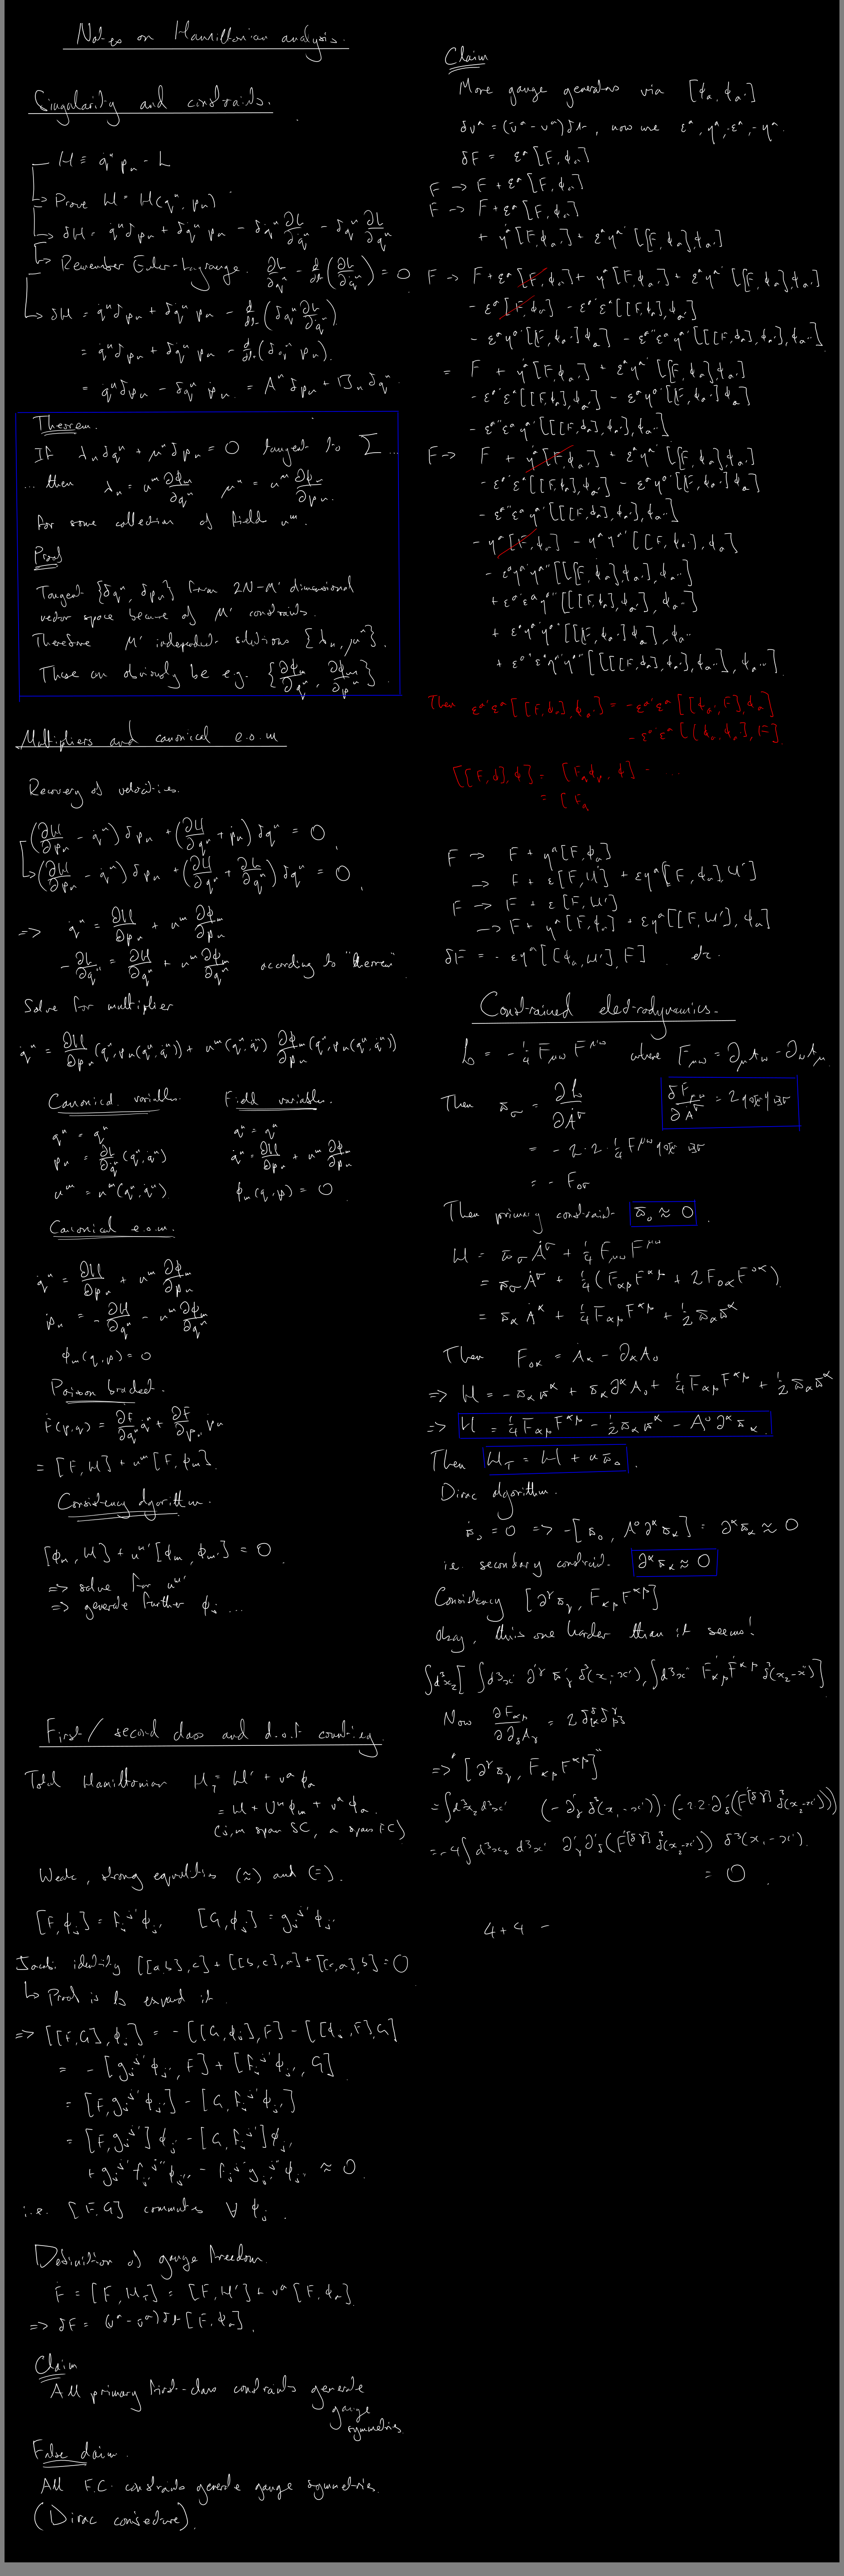 Notes on Hamiltonian analysis.
Singularity and constraints.
H = q̇ⁿ pₙ - L
Prove H = H(qⁿ, pₙ)
δH = q̇ⁿδpₙ + δq̇ⁿ pₙ - δq̇ⁿ ∂L/∂q̇ⁿ - δqⁿ ∂L/∂qⁿ
Remember Euler-Lagrange. ∂L/∂qⁿ - d/dt(∂L/∂q̇ⁿ) = 0
δH = q̇ⁿδpₙ + δq̇ⁿ pₙ - d/dt(δqⁿ ∂L/∂q̇ⁿ)
= q̇ⁿδpₙ + δq̇ⁿ pₙ - d/dt(δqⁿ pₙ)
= q̇ⁿδpₙ - δqⁿ ṗₙ = Aⁿ δpₙ + Bₙ δqⁿ.
Theorem.
If λₙδqⁿ + μⁿδpₙ = 0 tangent to Σ ...
... then λₙ = uᵐ ∂φₘ/∂qⁿ μⁿ = uᵐ ∂φₘ/∂pₙ
for some collection of field uᵐ.
Proof
Tangent {δqⁿ, δpₙ} form 2N-M' dimensional
vector space because of M' constraints.
Therefore M' independent solutions {λₙ, μⁿ}.
These can obviously be e.g. {∂φₘ/∂qⁿ, ∂φₘ/∂pₙ}
Multipliers and canonical e.o.m
Recovery of velocities.
(∂H/∂pₙ - q̇ⁿ) δpₙ + (∂H/∂qⁿ + ṗₙ) δqⁿ = 0
(∂H/∂pₙ - q̇ⁿ) δpₙ + (∂H/∂qⁿ + ∂L/∂qⁿ) δqⁿ = 0
=> q̇ⁿ = ∂H/∂pₙ + uᵐ ∂φₘ/∂pₙ
-∂L/∂qⁿ = ∂H/∂qⁿ + uᵐ ∂φₘ/∂qⁿ according to "theorem".
Solve for multiplier
q̇ⁿ = ∂H/∂pₙ (qⁿ, pₙ(qⁿ, q̇ⁿ)) + uᵐ(qⁿ, q̇ⁿ) ∂φₘ/∂pₙ (qⁿ, pₙ(qⁿ, q̇ⁿ))
Canonical variables. Field variables.
qⁿ = qⁿ qⁿ = qⁿ
pₙ = ∂L/∂q̇ⁿ (qⁿ, q̇ⁿ) q̇ⁿ = ∂H/∂pₙ + uᵐ ∂φₘ/∂pₙ
uᵐ = uᵐ(qⁿ, q̇ⁿ) φₘ(q, p) = 0
Canonical e.o.m.
q̇ⁿ = ∂H/∂pₙ + uᵐ ∂φₘ/∂pₙ
ṗₙ = -∂H/∂qⁿ - uᵐ ∂φₘ/∂qⁿ
φₘ(q, p) = 0
Poisson bracket.
Ḟ(p, q) = ∂F/∂qⁿ q̇ⁿ + ∂F/∂pₙ ṗₙ
= [F, H] + uᵐ [F, φₘ].
Consistency algorithm.
[φₘ, H] + uᵐ' [φₘ, φₘ'] = 0
=> solve for uᵐ'
=> generate further φⱼ ...
First/second class and d.o.f counting.
Total Hamiltonian H_T = H' + vᵃ φₐ
= H + Uᵐ φₘ + vᵃ φₐ
(j, m span SC, a span FC)
Weak, strong equalities (≈) and (=).
[F, φⱼ] = fⱼʲ' φⱼ' [G, φⱼ] = gⱼʲ' φⱼ'
Jacobi identity [[a,b],c] + [[b,c],a] + [[c,a],b] = 0
Proof is to expand it.
=> [[F,G], φⱼ] = -[[G, φⱼ], F] - [[φⱼ, F], G]
= -[gⱼʲ' φⱼ', F] + [fⱼʲ' φⱼ', G]
= [F, gⱼʲ' φⱼ'] - [G, fⱼʲ' φⱼ']
= [F, gⱼʲ'] φⱼ' - [G, fⱼʲ'] φⱼ'
+ gⱼʲ' fⱼ'ʲ'' φⱼ'' - fⱼʲ' gⱼ'ʲ'' φⱼ'' ≈ 0
i.e. [F, G] commutes ∀ φⱼ.
Definition of gauge freedom.
Ḟ = [F, H_T] = [F, H'] + vᵃ [F, φₐ]
=> δF = (vᵃ - ṽᵃ) δt [F, φₐ].
Claim
All primary first-class constraints generate
gauge
symmetries.
False claim.
All F.C. constraints generate gauge symmetries.
(Dirac conjecture).
Claim
More gauge generators via [φₐ, φₐ']
δvᵃ = (vᵃ - ṽᵃ) δt, now use εᵃ, ηᵃ, -εᵃ, -ηᵃ.
δF = εᵃ [F, φₐ]
F → F + εᵃ [F, φₐ]
F → F + εᵃ [F, φₐ]
+ ηᵃ [F, φₐ] + εᵃ ηᵃ' [[F, φₐ], φₐ']
F → F + εᵃ [F, φₐ] + ηᵃ [F, φₐ] + εᵃ ηᵃ' [[F, φₐ], φₐ']
- εᵃ [F, φₐ] - εᵃ' εᵃ [[F, φₐ], φₐ']
- εᵃ ηᵃ' [[F, φₐ'], φₐ] - εᵃ'' εᵃ ηᵃ' [[[F, φₐ], φₐ'], φₐ'']
= F + ηᵃ [F, φₐ] + εᵃ ηᵃ' [[F, φₐ], φₐ']
- εᵃ' εᵃ [[F, φₐ], φₐ'] - εᵃ ηᵃ' [[F, φₐ'], φₐ]
- εᵃ'' εᵃ ηᵃ' [[[F, φₐ], φₐ'], φₐ'']
F → F + ηᵃ [F, φₐ] + εᵃ ηᵃ' [[F, φₐ], φₐ']
- εᵃ' εᵃ [[F, φₐ], φₐ'] - εᵃ ηᵃ' [[F, φₐ'], φₐ]
- εᵃ'' εᵃ ηᵃ' [[[F, φₐ], φₐ'], φₐ'']
- ηᵃ [F, φₐ] - ηᵃ ηᵃ' [[F, φₐ'], φₐ]
Then εᵃ' εᵃ [[F, φₐ], φₐ'] = -εᵃ' εᵃ [[φₐ', F], φₐ]
- εᵃ' εᵃ [[φₐ, φₐ'], F]
F → F + ηᵃ [F, φₐ]
→ F + ε [F, H'] + ε ηᵃ [[F, φₐ], H']
F → F + ε [F, H']
→ F + ηᵃ [F, φₐ] + ε ηᵃ [[F, H'], φₐ]
δF = - ε ηᵃ [[φₐ, H'], F]. etc.
Constrained electrodynamics.
L = -¼ F_μν F^μν where F_μν = ∂_μ A_ν - ∂_ν A_μ
Then ϖ_σ = ∂L/∂Ȧ^σ
= - F₀σ
Then primary constraint ϖ₀ ≈ 0.
H = ϖ_σ Ȧ^σ + ¼ F_μν F^μν
= ϖ_σ Ȧ^σ + ¼ (F_αβ F^αβ + 2 F₀α F^0α)
= ϖ_α Ȧ^α + ¼ F_αβ F^αβ + ½ ϖ_α ϖ^α
Then F₀α = Ȧ_α - ∂_α A₀
=> H = -ϖ_α ϖ^α + ϖ_α ∂^α A₀ + ¼ F_αβ F^αβ + ½ ϖ_α ϖ^α
=> H = ¼ F_αβ F^αβ - ½ ϖ_α ϖ^α - A⁰ ∂^α ϖ_α.
Then H_T = H + u ϖ₀.
Dirac algorithm.
ϖ̇₀ = 0 => -[ϖ₀, A⁰ ∂^α ϖ_α] = ∂^α ϖ_α ≈ 0
i.e. secondary constraint. ∂^α ϖ_α ≈ 0
Consistency [∂^γ ϖ_γ, F_αβ F^αβ]
Okay, this one harder than it seems!
∫d³x₂ [∫d³x' ∂'^γ ϖ'_γ δ³(x₁-x'), ∫d³x'' F_αβ F^αβ δ³(x₂-x'')]
Now ∂F_αβ/∂∂_δ A_γ = 2 δ^δ_α δ^γ_β
=> "[∂^γ ϖ_γ, F_αβ F^αβ]"
= ∫d³x₂ d³x' (-∂'_γ δ³(x₁-x')) · (-2·2·∂'_δ (F'^[δγ] δ³(x₂-x')))
= -4 ∫d³x₂ d³x' ∂'_γ ∂'_δ (F'^[δγ] δ³(x₂-x')) δ³(x₁-x')
= 0.
4 + 4 -